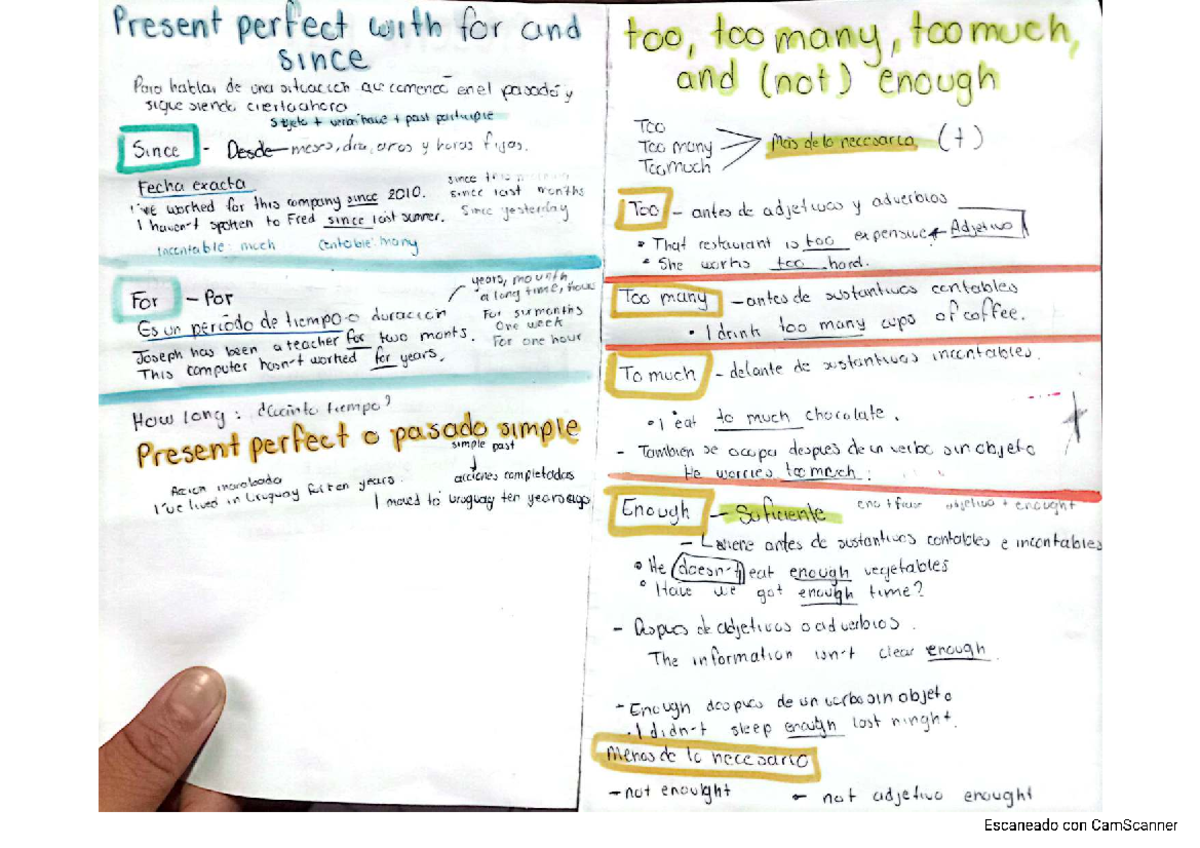 Present perfect with for and
since
Para hablar de una situación que comenzó en el pasado y
sigue siendo cierta ahora
Sujeto + verbo have + past participle
Since - Desde - meses, dia, años y horas fijas.
Fecha exacta
I've worked for this company since 2010.
I haven't spotten to Fred since last summer.
since this
since last months
Since yesterday
Incontable: much contable: many
For - Por
Es un período de tiempo o duración
years, mounth
a long time, hour
For su months
One week
For one hour
Joseph has been a teacher for two monts.
This computer hasn't worked for years.
How long: ¿Cuánto tiempo?
Present perfect o pasado simple
simple past
Acción inacabada
acciones completadas
I've lived in Uruguay for ten years.
I moved to Uruguay ten years ago
too, too many, too much,
and (not) enough
Too
Too many
Too much
Más de lo necesario (+)
Too - antes de adjetivos y adverbios
• That restaurant is too expensive Adjetivo
• She works too hard.
Too many - antes de sustantivos contables
• I drink too many cups of coffee.
To much - delante de sustantivos incontables.
• I eat to much chocolate.
- Tambien se ocupa despues de un verbo sin objeto
He worries too much.
Enough - Suficiente
adjetivo + enought
- antes de sustantivos contables e incontables
• He doesn't eat enough vegetables
• Have we got enough time?
- Despues de adjetivos o adverbios.
The information isn't clear enough
- Enough despues de un verbo sin objeto
. I didn't sleep enough last ninght.
Menos de lo necesario
- not enought - not adjetivo enought
Escaneado con CamScanner